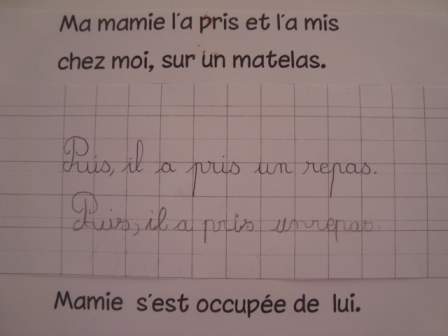 Ma mamie l'a pris et l'a mis
chez moi, sur un matelas.
Puis, il a pris un repas.
Puis, il a pris un repas.
Mamie s'est occupée de lui.